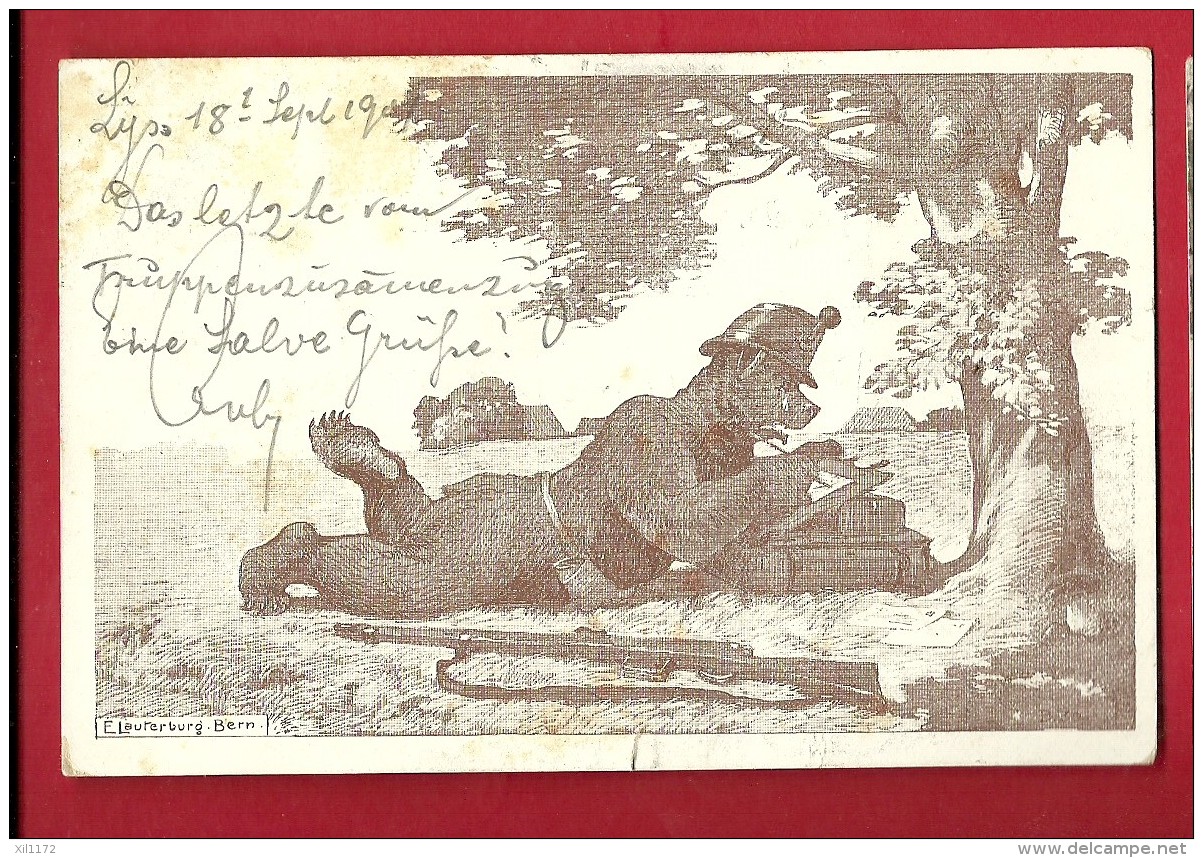 Lyss 18t Sept 190
Das letzte vom
Truppenzusam̄enzug
eine Salve Grüße!
E Lauterburg. Bern.
xil1172
delcampe.net